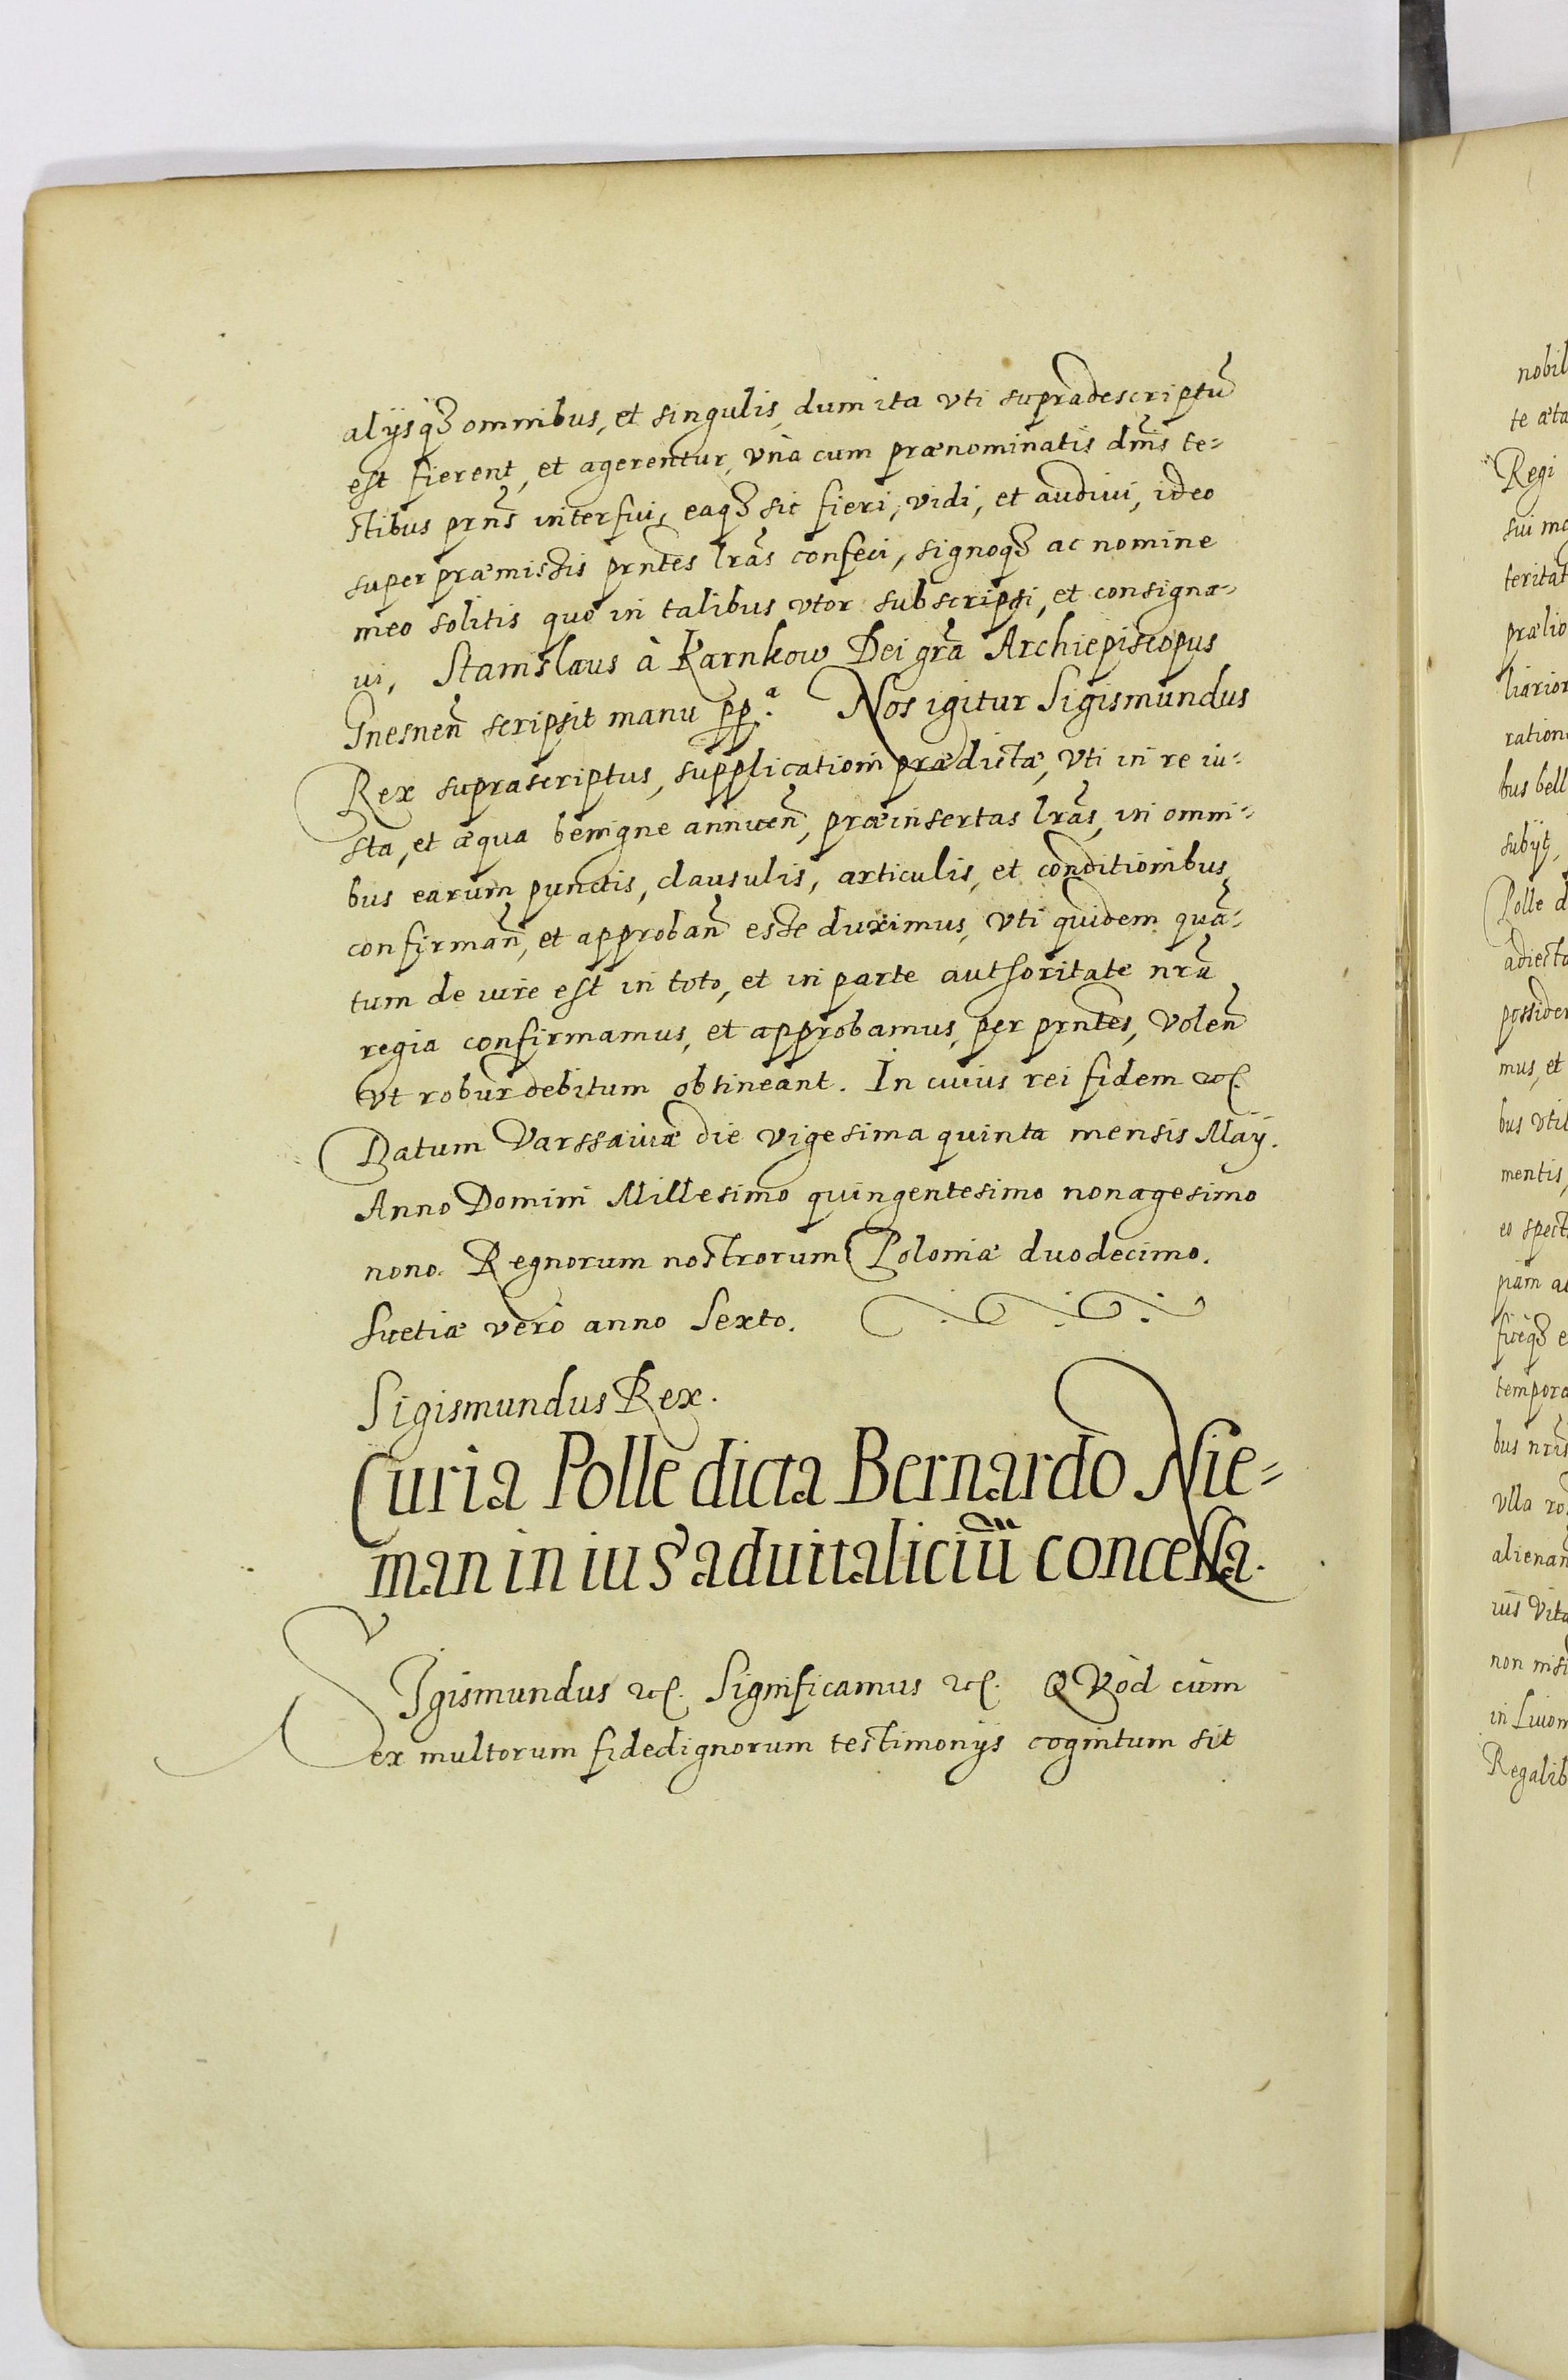 alijsq3 omnibus, et singulis, dum ita vti supradescriptũ
est fierent, et agerentur, vnà cum prænominatis dñis te=
stibus prñs interfui, eaq3 sic fieri, vidi, et audiui, ideo
super præmissis prñtes lras confeci, signoq3 ac nomine
meo solitis quo in talibus vtor subscripsi, et consigna=
ui, Stanislaus à Karnkow Dei gra Archiepiscopus
Gnesneñ scripsit manu pp.ª Nos igitur Sigismundus
Rex suprascriptus, supplicationi prædictæ, vti in re iu=
sta, et æqua benigne annueñ, præinsertas lras, in omni=
bus earum punctis, clausulis, articulis, et conditionibus
confirmañ, et approbañ esse duximus, vti quidem quã=
tum de iure est in toto, et in parte authoritate nrã
regia confirmamus, et approbamus, per prñtes, voleñ
vt robur debitum obtineant. In cuius rei fidem etc.
Datum Varssauiæ die vigesima quinta mensis Maij.
Anno Domini Millesimo quingentesimo nonagesimo
nono. Regnorum nostrorum Poloniæ duodecimo.
Suetiæ verò anno Sexto.
Sigismundus Rex.
Curia Polle dicta Bernardo Nie=
man in ius aduitaliciũ concessa.
SIgismundus etc. Significamus etc. QVod cùm
ex multorum fidedignorum testimonijs cognitum sit
nobil
te æta
Regi
sui mo
teritat
prælio
liarior
ration
bus bell
subijt,
Polle d
adiecto
possider
mus, et
bus vtil
mentis,
eo spect
piam a
sicq3 e
tempora
bus nris
vlla ro
alienan
ius vita
non nisi
in Liuon
Regalib